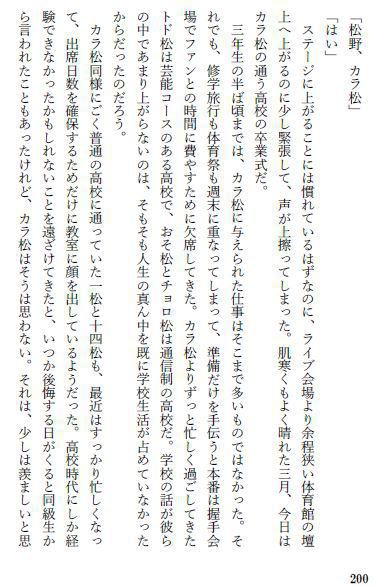 「松野、カラ松」
「はい」
　ステージに上がることには慣れているはずなのに、ライブ会場より余程狭い体育館の壇
上へ上がるのに少し緊張して、声が上擦ってしまった。肌寒くもよく晴れた三月、今日は
カラ松の通う高校の卒業式だ。
　三年生の半ば頃までは、カラ松に与えられた仕事はそこまで多いものではなかった。そ
れでも、修学旅行も体育祭も週末に重なってしまって、準備だけを手伝うと本番は握手会
場でファンとの時間に費やすために欠席してきた。カラ松よりずっと忙しく過ごしてきた
トド松は芸能コースのある高校で、おそ松とチョロ松は通信制の高校だ。学校の話が彼ら
の中であまり上がらないのは、そもそも人生の真ん中を既に学校生活が占めていなかった
からだったのだろう。
　カラ松同様にごく普通の高校に通っていた一松と十四松も、最近はすっかり忙しくなっ
て、出席日数を確保するためだけに教室に顔を出しているようだった。高校時代にしか経
験できなかったかもしれないことを遠ざけてきたと、いつか後悔する日がくると同級生か
ら言われたこともあったけれど、カラ松はそうは思わない。それは、少しは羨ましいと思
200